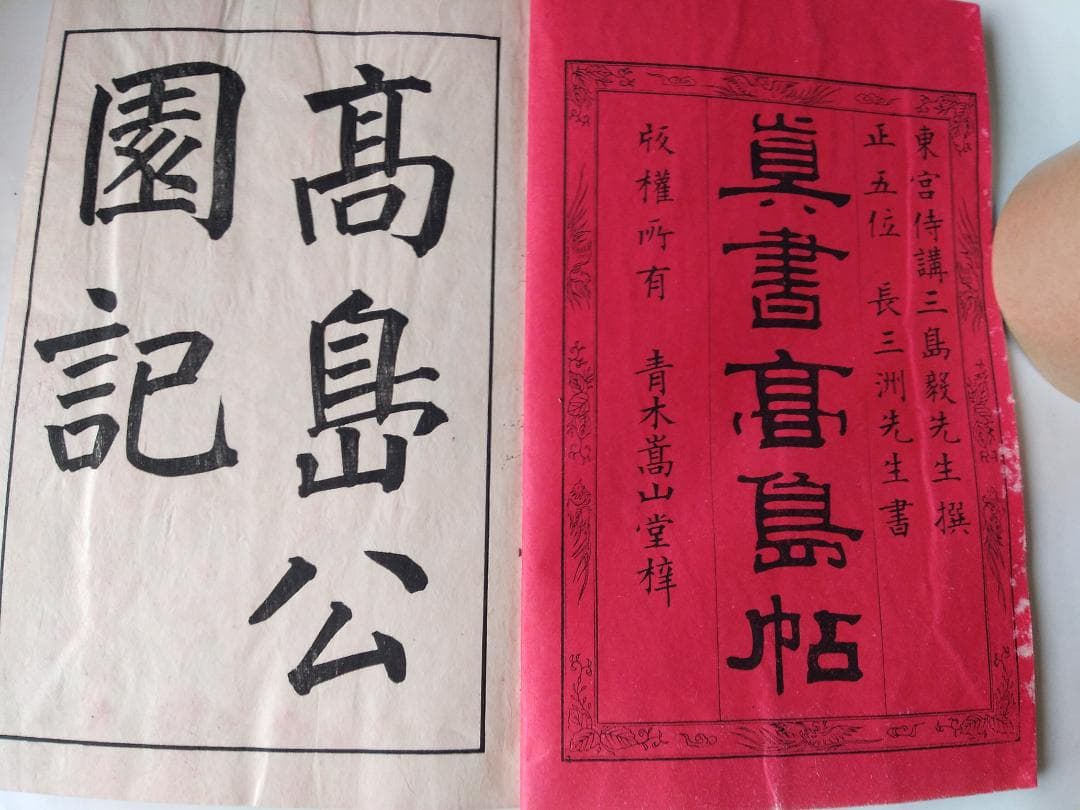 東宮侍講三島毅先生撰
正五位 長三洲先生書
眞書高島帖
版權所有 青木嵩山堂梓
髙㠀公
園記